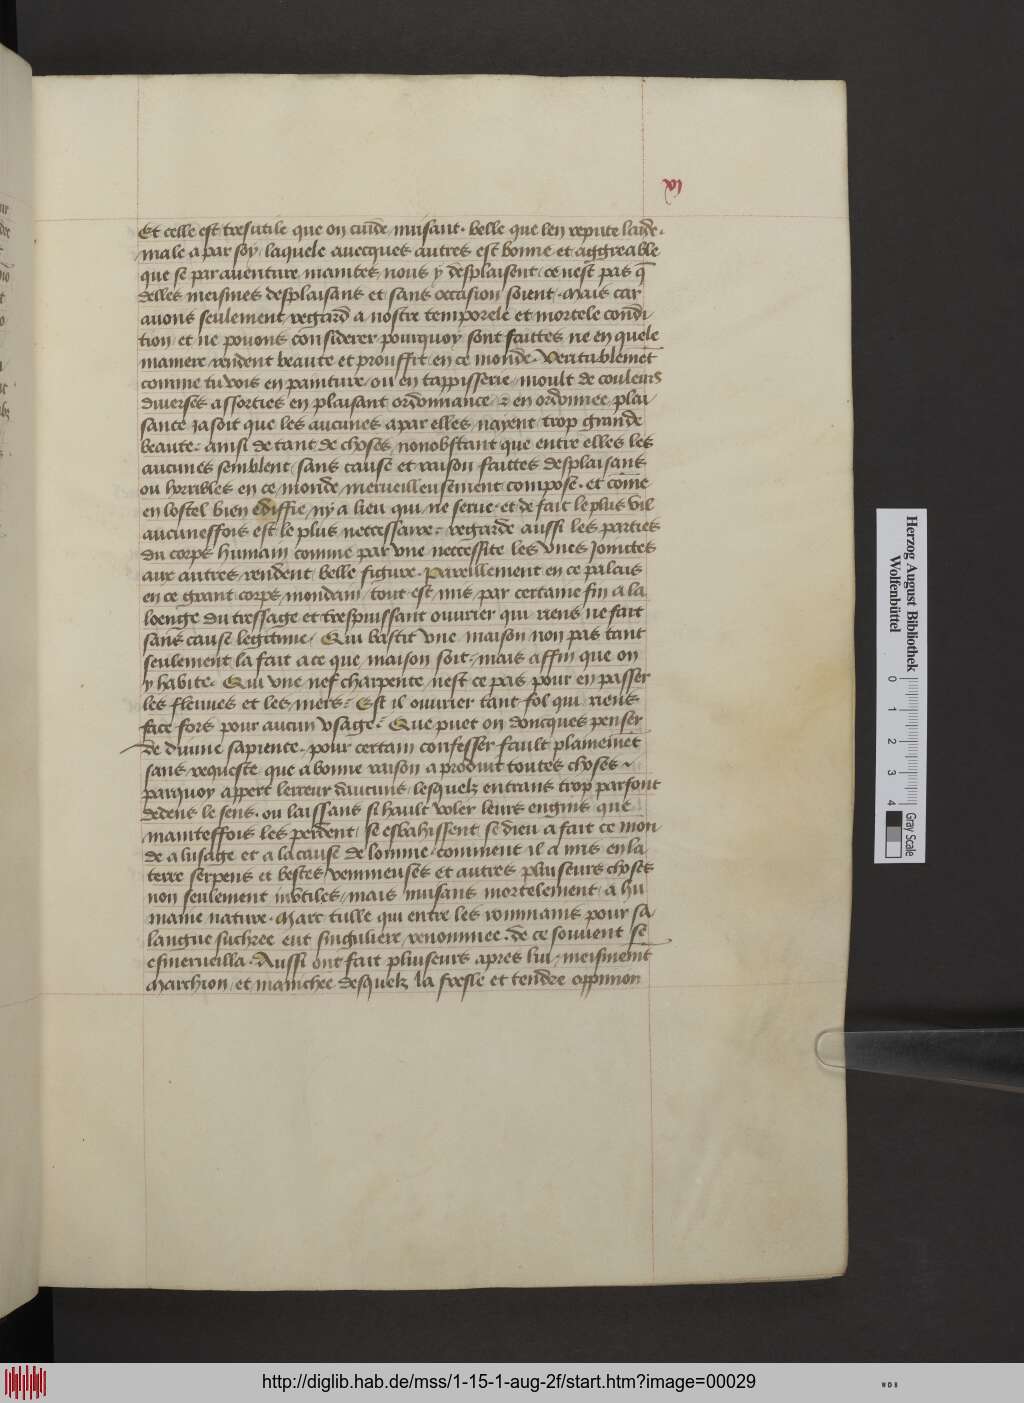 xi
Et celle est tresutile que on cuide nuisant. belle que len repute laide.
male a par soy, laquele avecques autres est bonne et aggreable
que se par aventure maintes nous y desplaisent, ce nest pas q̄
delles meismes desplaisans et sans occasion soient. Mais car
avons seulement regard a nostre temporele et mortele condi
tion et ne povons considerer pourquoy sont faittes ne en quele
maniere rendent beaute et prouffit en ce monde. Veritablemēt
comme tu vois en painture ou en tappisserie moult de couleurs
diverses assorties en plaisant ordonnance, et en ordonnee plai
sance Jasoit que les aucunes apar elles nayent trop grande
beaute. ainsi de tant de choses nonobstant que entre elles les
aucunes semblent sans cause et raison faittes desplaisans
ou horribles en ce monde merveilleusement compose. et cōme
en lostel bien ediffie ny a lieu qui ne serve. et de fait le plus vil
aucuneffois est le plus neccessaire. regarde aussi les parties
du corps humain comme par une neccessite les unes Jointes
aux autres rendent belle figure. Pareillement en ce palais
en ce grant corps mondain tout est mis par certaine fin a la
loenge du tressage et trespuissant ouvrier qui riens ne fait
sans cause legitime. Qui bastit une maison non pas tant
seulement la fait a ce que maison soit, mais affin que on
y habite. Qui une nef charpente nest ce pas pour en passer
les fleuves et les mers. Est il ouvrier tant fol qui riens
face fors pour aucun usage. Que puet on doncques penser
de divine sapience. pour certain confesser fault plainemēt
sans requeste que a bonne raison a produit toutes choses.
parquoy appert lerreur daucuns, lesquelz entrans trop parfont
dedens le sens, ou laissans si hault voler leurs engins que
mainteffois les perdent, se esbahissent se dieu a fait ce mon
de a lusage et a la cause de lomme. comment il a mis en la
terre serpens et bestes venimeuses et autres pluiseurs choses
non seulement inutiles, mais nuisans mortelement a hu
maine nature. Marc tulle qui entre les rommains pour sa
langue suchree eut singuliere renommee, de ce souvent se
esmerveilla. Aussi ont fait pluiseurs apres lui, meismemēt
Marchion, et manichee desquelz la fresle et tendre oppinion
Herzog August Bibliothek
Wolfenbüttel
0 1 2 3 4
Gray Scale
http://diglib.hab.de/mss/1-15-1-aug-2f/start.htm?image=00029
WDB